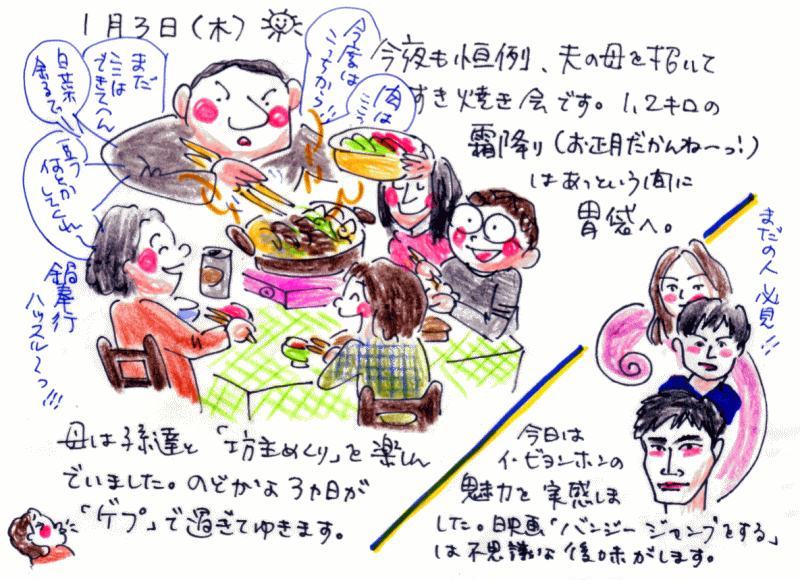 1月3日(木)
今度は
こっちかっ!!!
肉は
ここっ
まだ
ここは
できてへん
白菜
余るで
鍋奉行
ハッスル〜っ!!!
今夜も恒例、夫の母を招いて
すき焼き会です。1,2キロの
霜降り(お正月だかんね〜っ!)
はあっという間に
胃袋へ。
まだの人 必見!!
母は孫達と「坊主めくり」を楽しん
でいました。のどかな3ヵ日が
「ゲプ」で過ぎてゆきます。
今日は
イ・ビョンホンの
魅力を実感しま
した。映画「バンジージャンプをする」
は不思議な後味がします。